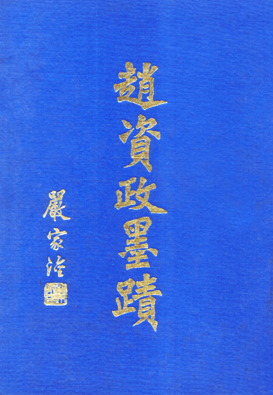 趙資政墨蹟
嚴家淦